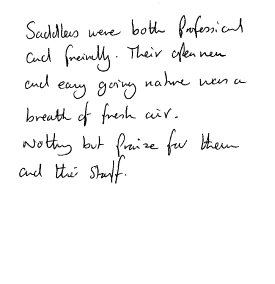 Saddlers were both Professional
and freindly. Their openness
and easy going nature was a
breath of fresh air.
Nothing but Praise for them
and their staff.